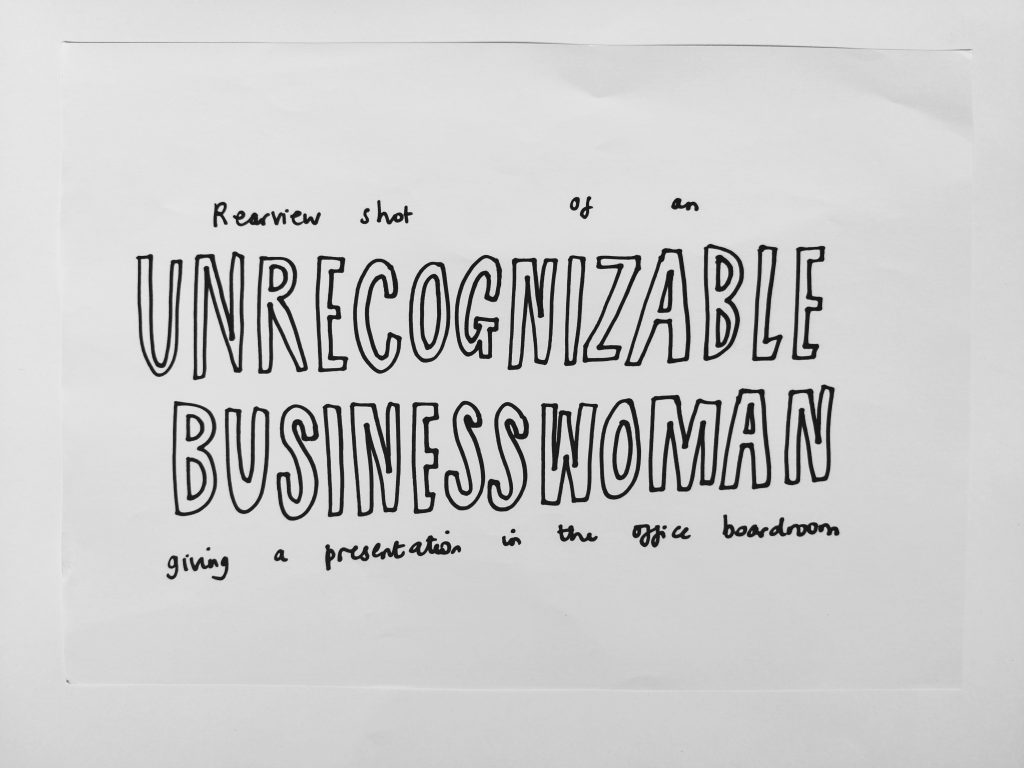 Rearview shot of an
UNRECOGNIZABLE
BUSINESSWOMAN
giving a presentation in the office boardroom